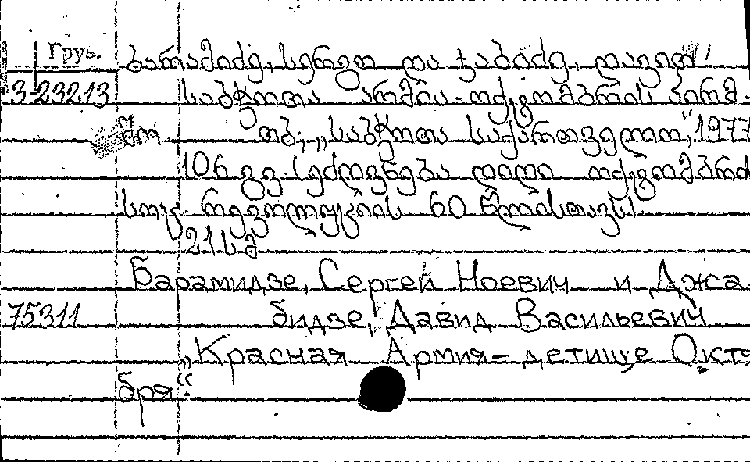 Груз. ბარამიძე, სერგო და ჯაბიძე, დავით
3 23213 საბჭოთა არმია - ოქტომბრის პირმ-
შო თბ., „საბჭოთა საქართველო“, 1977
106 გვ. (ეძღვნება დიდი ოქტომბრი
სოც. რევოლუციის 60 წლისთავს)
21 სმ
Барамидзе, Сергей Ноевич и Джа-
75311 бидзе, Давид Васильевич
„Красная Армия – детище Октя
бря“